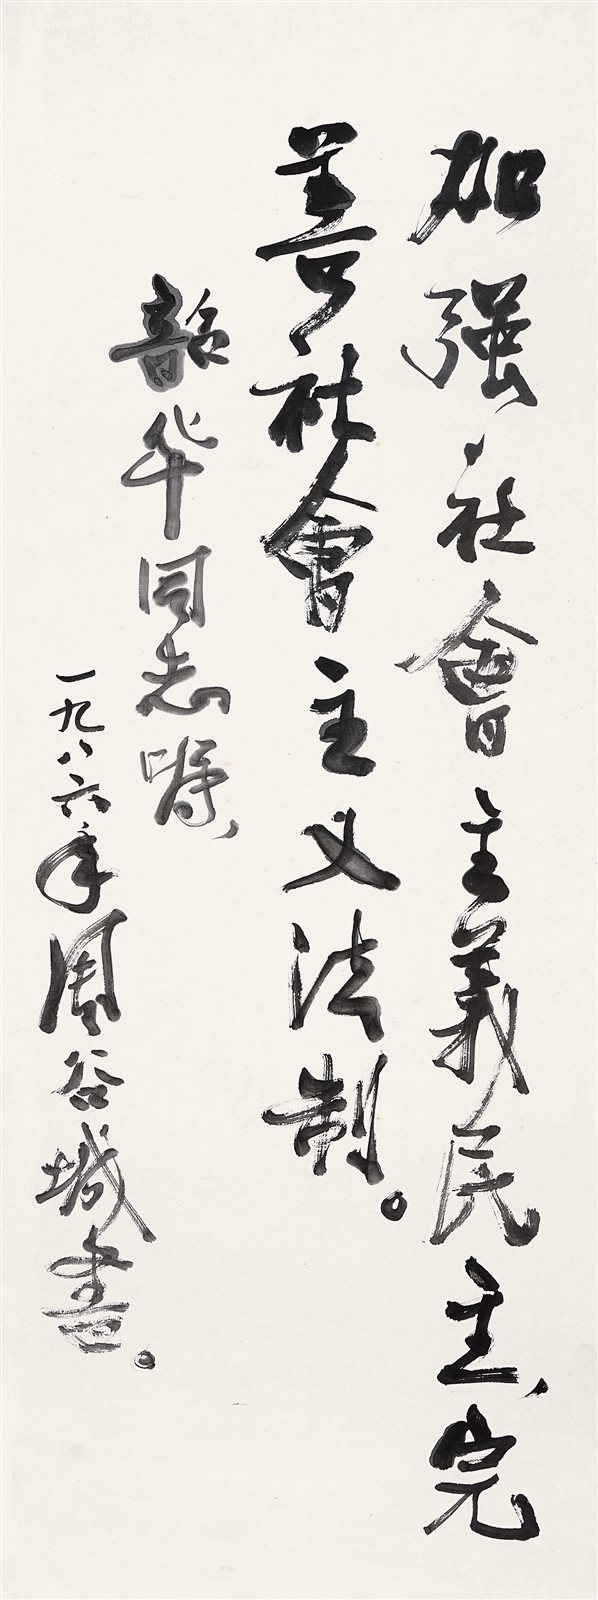 加强社會主義民主，完
善社會主义法制。
韶华同志嘱，
一九八六年周谷城書。